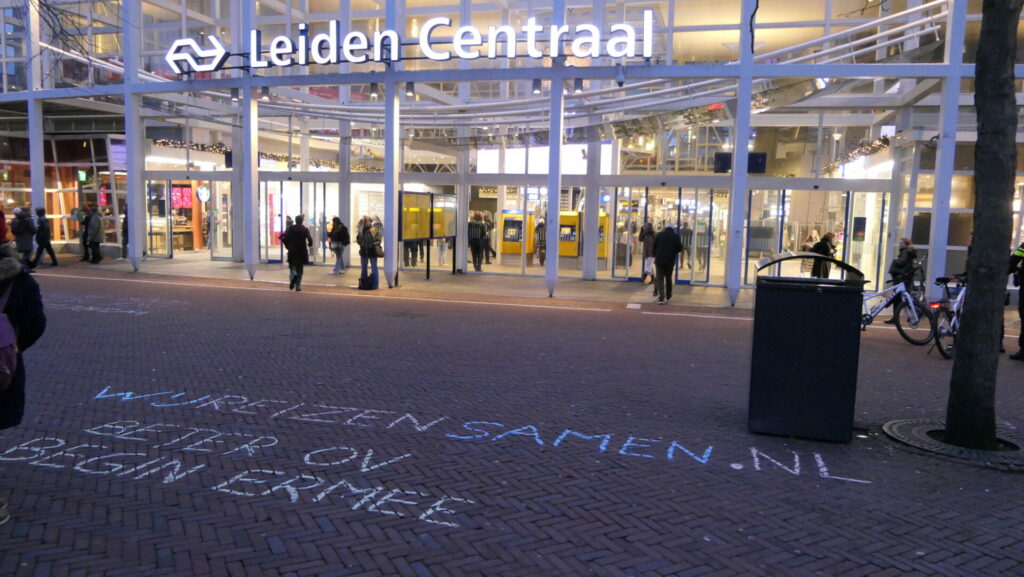 Leiden Centraal
WIJREIZEN SAMEN.NL
BETER OV
BEGIN ERMEE